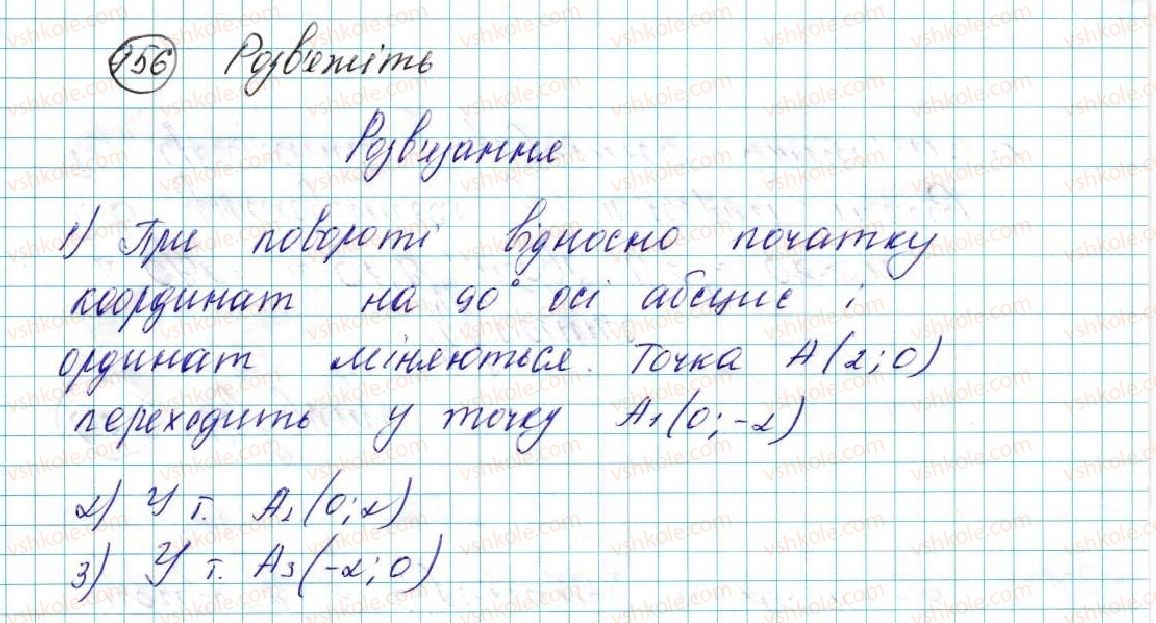 956 Розв'яжіть
Розв'язання
1) При повороті відносно початку
координат на 90° осі абсцис і
ординат міняються. Точка A(2;0)
переходить у точку A₁(0;-2)
2) У т. A₂(0;2)
3) У т. A₃(-2;0)
vshkole.com